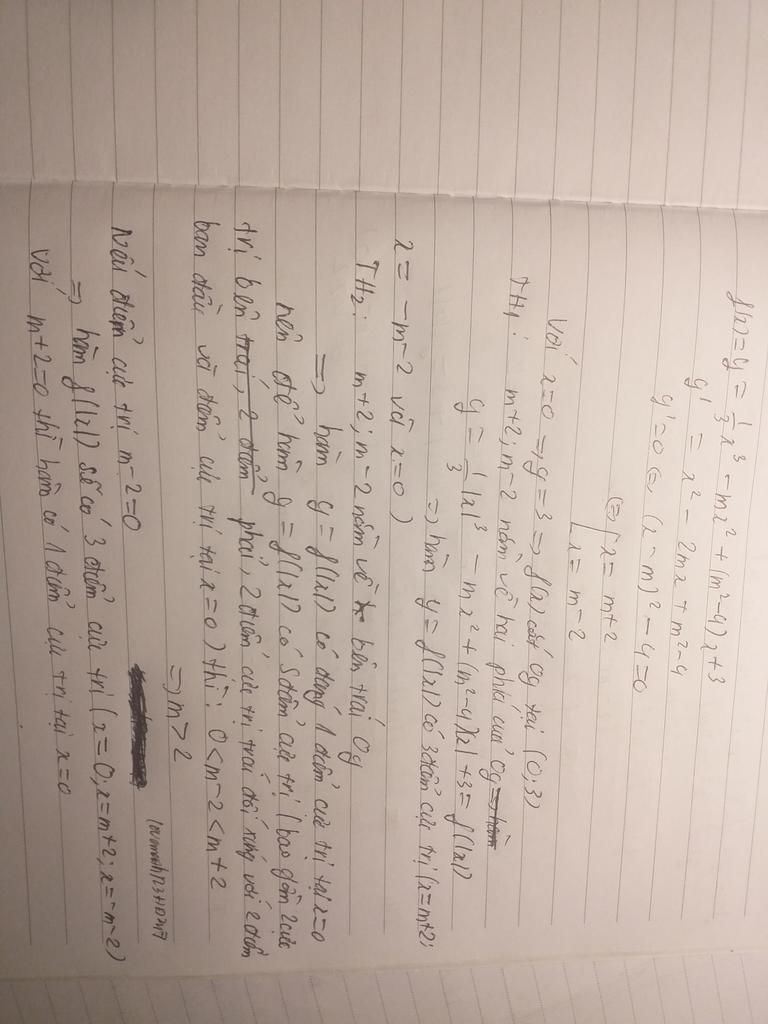 f(x) = y = 1/3 x³ - mx² + (m²-4)x + 3
y' = x² - 2mx + m² - 4
y' = 0 ⇔ (x-m)² - 4 = 0
⇔ [ x = m+2
x = m-2
Với x=0 ⇒ y=3 ⇒ f(x) cắt Oy tại (0;3)
TH1: m+2; m-2 nằm về hai phía của Oy ⇒ hàm
y = 1/3 |x|³ - mx² + (m²-4)|x| + 3 = f(|x|)
⇒ hàm y = f(|x|) có 3 điểm cực trị (x=m+2;
x = -m-2 và x=0)
TH2: m+2; m-2 nằm về bên trái Oy
⇒ hàm y = f(|x|) có đúng 1 điểm cực trị tại x=0
nên để hàm y = f(|x|) có 5 điểm cực trị (bao gồm 2 cực
trị bên trái, 2 điểm phải, 2 điểm cực trị trái đối xứng với 2 điểm
ban đầu và điểm cực trị tại x=0) thì: 0 < m-2 < m+2
⇒ m > 2
Nếu điểm cực trị m-2=0
⇒ hàm f(|x|) sẽ có 3 điểm cực trị (x=0; x=m+2; x=-m-2)
với m+2=0 thì hàm có 1 điểm cực trị tại x=0